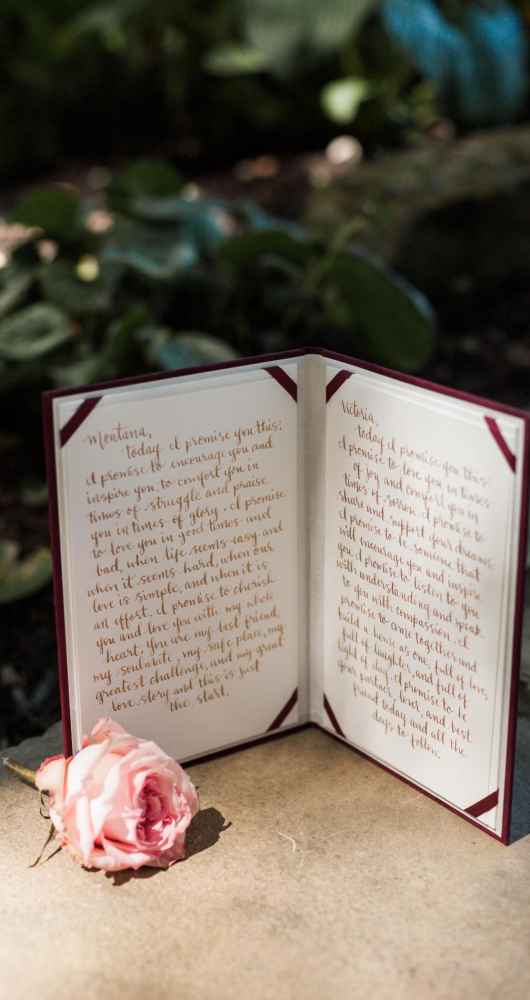 Montana,
today I promise you this:
I promise to encourage you and
inspire you, to comfort you in
times of struggle and praise
you in times of glory. I promise
to love you in good times and
bad, when life seems easy and
when it seems hard, when our
love is simple, and when it is
an effort. I promise to cherish
you and love you with my whole
heart. You are my best friend,
my soulmate, my safe place, my
greatest challenge, and my great
love story and this is just
the start.
Victoria,
today I promise you this:
I promise to love you in times
of joy and comfort you in
times of sorrow. I promise to
share and support your dreams.
I promise to be someone that
will encourage you and inspire
you. I promise to listen to you
with understanding and speak
to you with compassion. I
promise to come together and
build a home as one, full of love,
full of laughter, and full of
light of day. I promise to be
your partner, lover, and best
friend today and all the
days to follow.